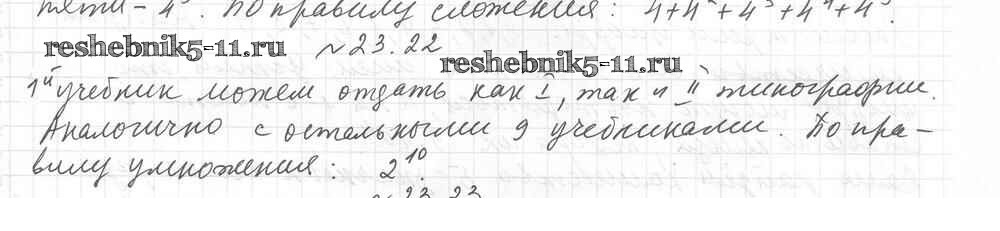 пяти - 4⁵. По правилу сложения: 4+4²+4³+4⁴+4⁵.
reshebnik5-11.ru №23.22
reshebnik5-11.ru
1й учебник можем отдать как I, так и II типографии.
Аналогично с остальными 9 учебниками. По пра-
вилу умножения: 2¹⁰.
№23.23